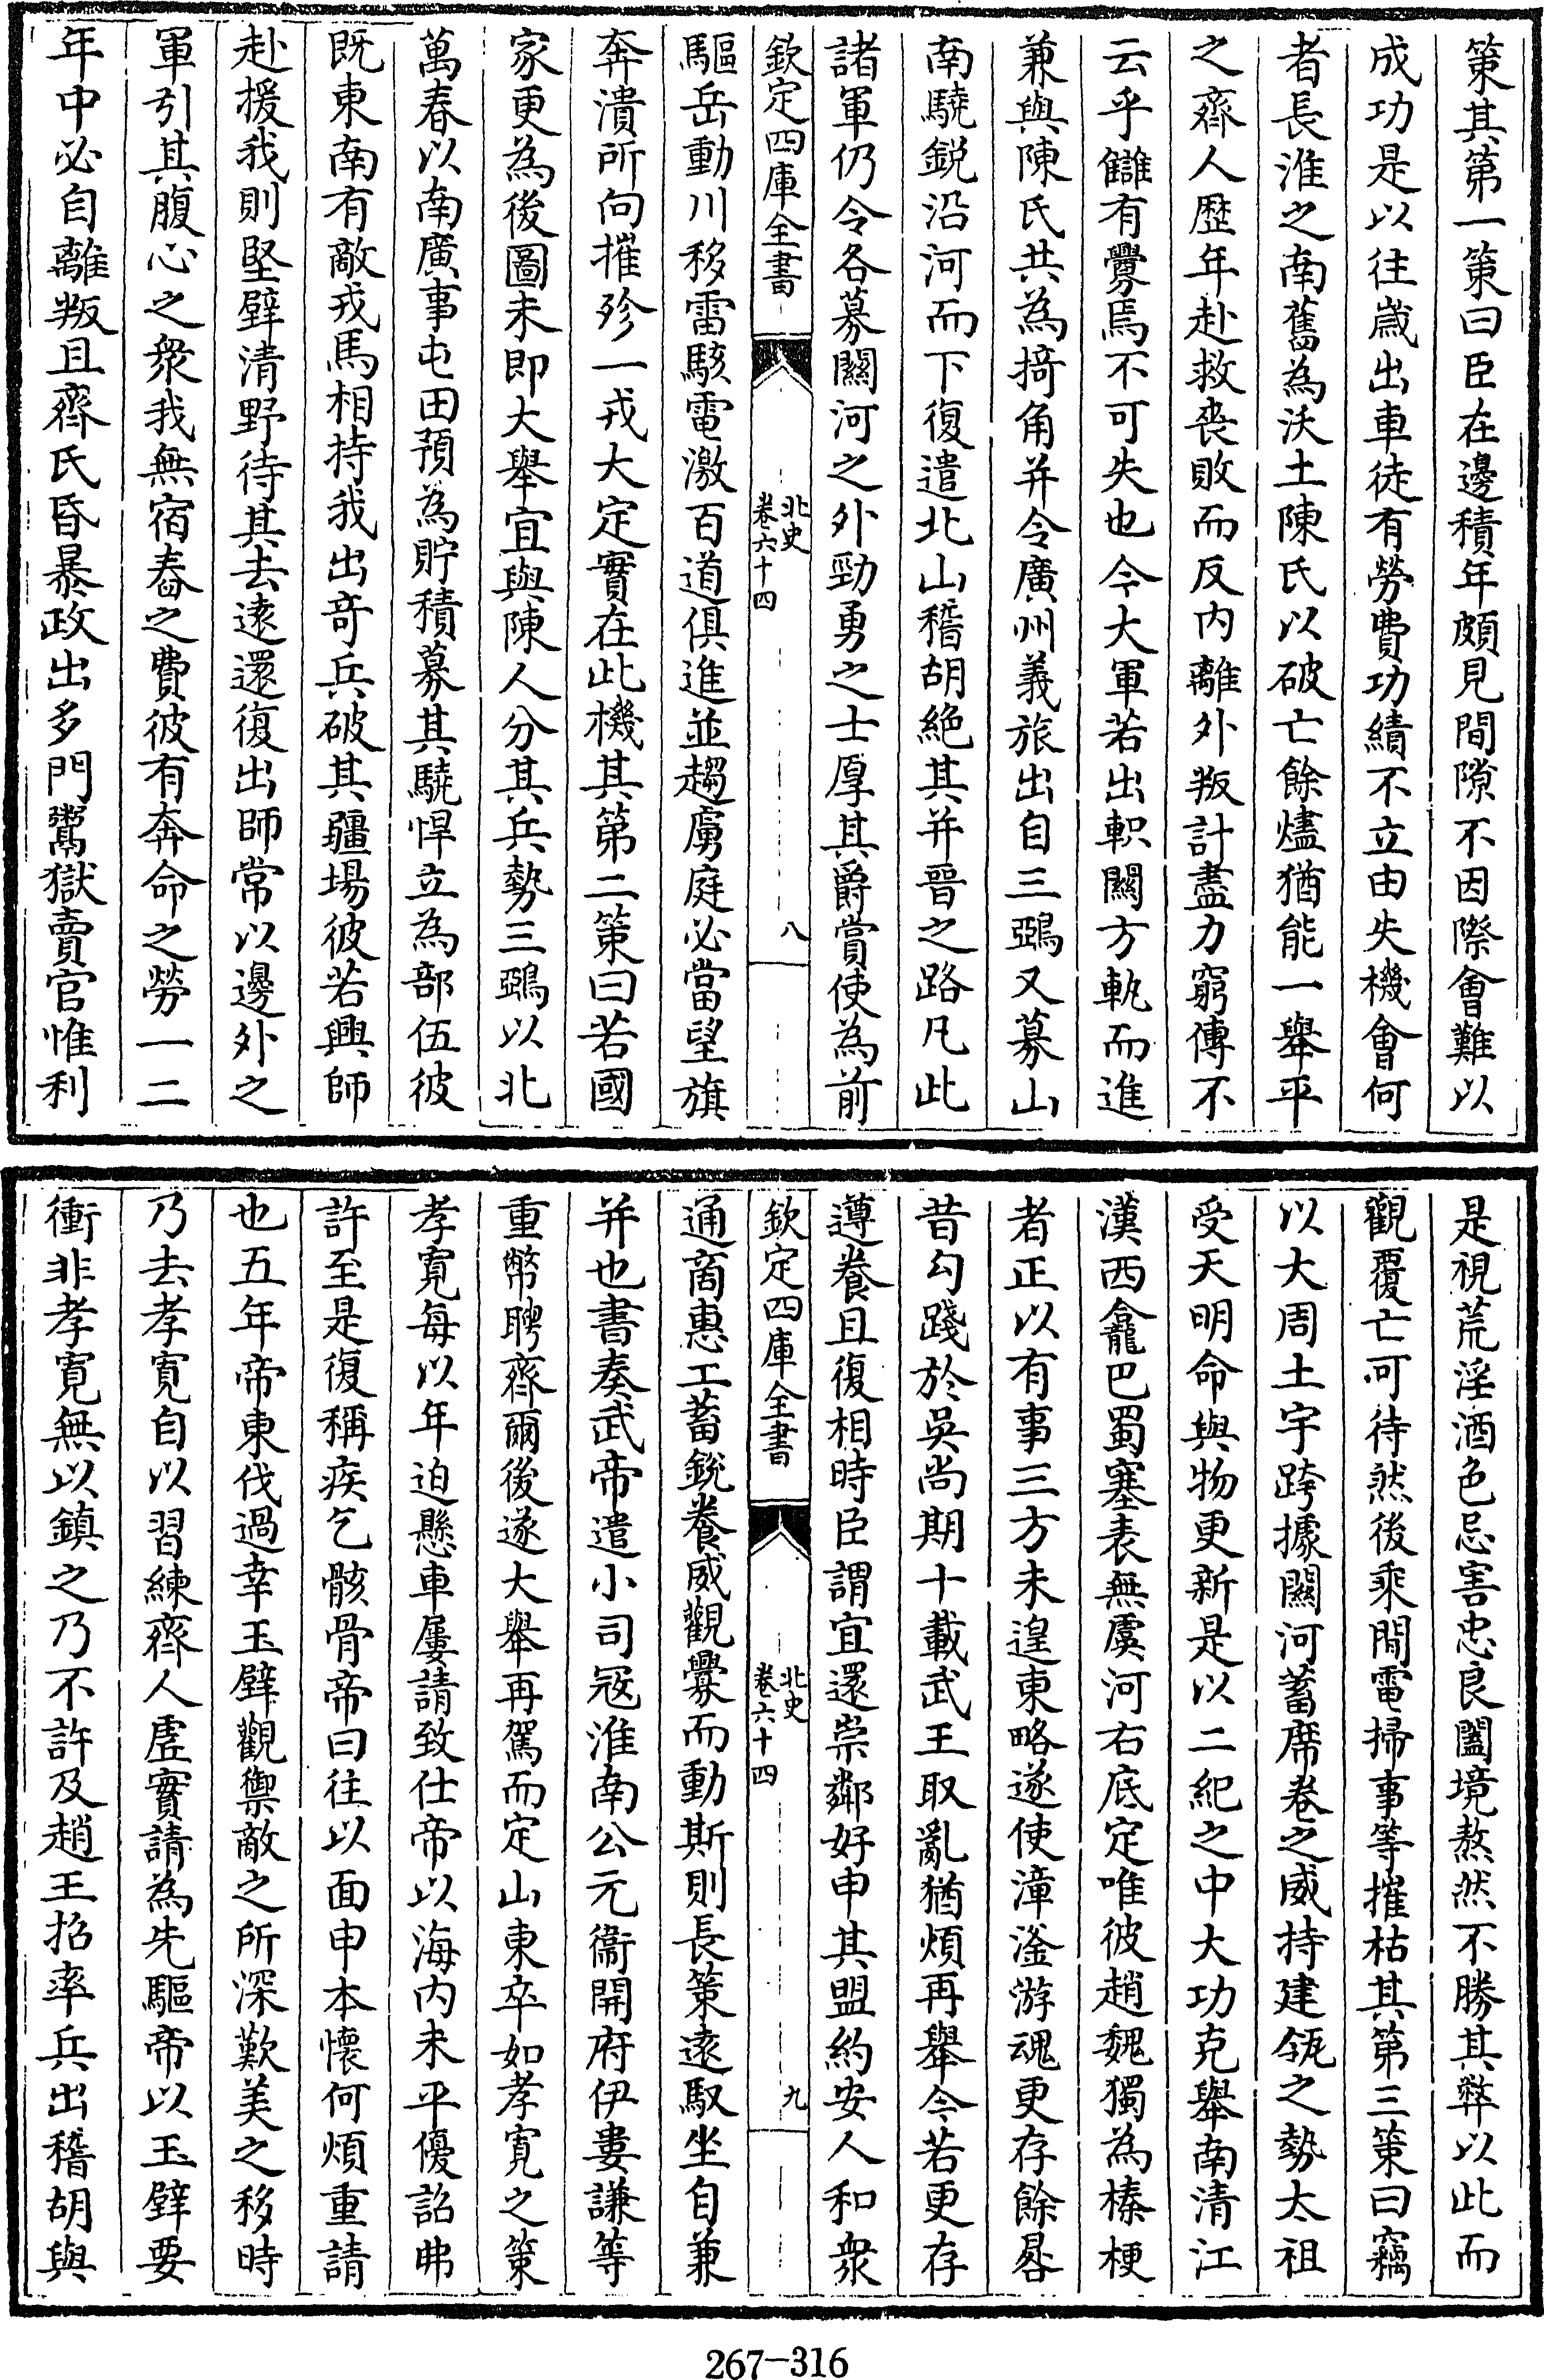 策其第一策曰臣在邊積年頗見間隙不因際會難以
成功是以往歲出車徒有勞費功績不立由失機會何
者長淮之南舊為沃土陳氏以破亡餘燼猶能一舉平
之齊人歷年赴救喪敗而反内離外叛計盡力窮傳不
云乎讎有釁焉不可失也今大軍若出軹關方軌而進
兼與陳氏共為掎角并令廣州義旅出自三鵶又募山
南驍鋭沿河而下復遣北山稽胡絶其并晉之路凡此
諸軍仍令各募關河之外勁勇之士厚其爵賞使為前
欽定四庫全書
北史
卷六十四
八
驅岳動川移雷駭電激百道俱進並趨虜庭必當望旗
奔潰所向摧殄一戎大定實在此機其第二策曰若國
家更為後圖未即大舉宜與陳人分其兵勢三鵶以北
萬春以南廣事屯田預為貯積募其驍悍立為部伍彼
既東南有敵戎馬相持我出奇兵破其疆場彼若興師
赴援我則堅壁清野待其去遠還復出師常以邊外之
軍引其腹心之衆我無宿舂之費彼有奔命之勞一二
年中必自離叛且齊氏昏暴政出多門鬻獄賣官惟利
是視荒淫酒色忌害忠良闔境熬然不勝其弊以此而
觀覆亡可待然後乘間電掃事等摧枯其第三策曰竊
以大周土宇跨據關河蓄席卷之威持建瓴之勢太祖
受天明命與物更新是以二紀之中大功克舉南清江
漢西龕巴蜀塞表無虞河右底定唯彼趙魏獨為榛梗
者正以有事三方未遑東略遂使漳滏游魂更存餘晷
昔勾踐於吳尚期十載武王取亂猶煩再舉今若更存
遵養且復相時臣謂宜還崇鄰好申其盟約安人和衆
欽定四庫全書
北史
卷六十四
九
通商惠工蓄鋭養威觀釁而動斯則長策遠馭坐自兼
并也書奏武帝遣小司寇淮南公元衞開府伊婁謙等
重幣聘齊爾後遂大舉再駕而定山東卒如孝寬之策
孝寬每以年迫懸車屢請致仕帝以海内未平優詔弗
許至是復稱疾乞骸骨帝曰往以面申本懷何煩重請
也五年帝東伐過幸玉壁觀禦敵之所深歎美之移時
乃去孝寬自以習練齊人虛實請為先驅帝以玉壁要
衝非孝寬無以鎮之乃不許及趙王招率兵出稽胡與
267-316